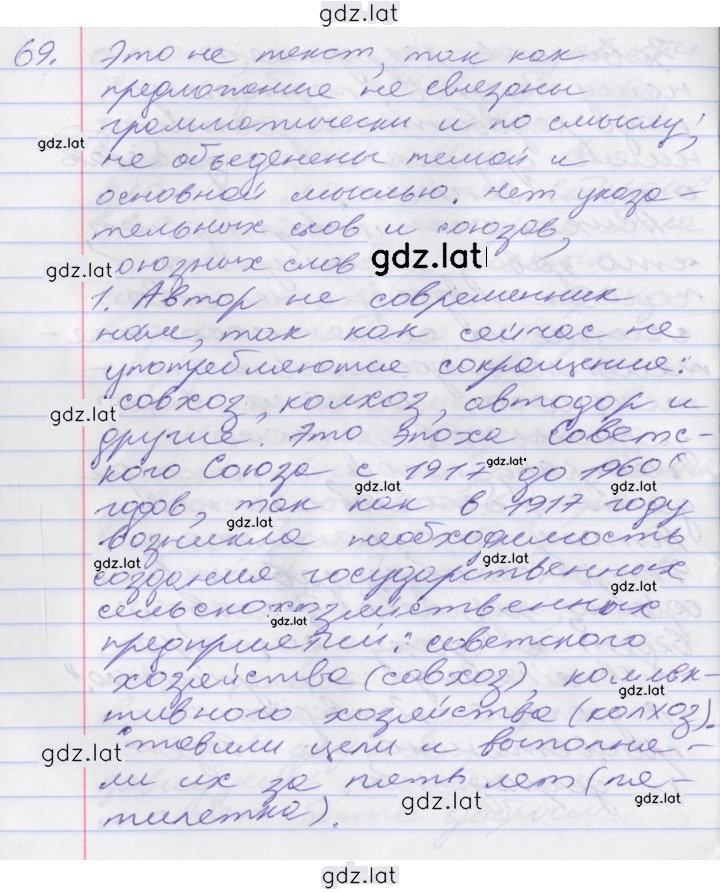 gdz.lat
69. Это не текст, так как
предложение не связаны
грамматически и по смыслу,
gdz.lat
не объеденены темой и
основной мыслью. нет указа-
тельных слов и союзов,
gdz.lat оюзных слов gdz.lat
1. Автор не современник
нам, так как сейчас не
употребляются сокращения:
gdz.lat
совхоз, колхоз, автодор и
другие. Это эпоха Советс-
кого Союза с 1917 gdz.lat до 1960х
gdz.lat gdz.lat
годов, так как в 1917 году
gdz.lat
возникла необходимость
gdz.lat gdz.lat
создания государственных
gdz.lat
сельскохозяйственных
gdz.lat
предприятий: советского
хозяйства (совхоз), коллек-
gdz.lat
тивного хозяйства (колхоз).
gdz.lat тавили цели и выполня-
ли их за пять лет (пя-
gdz.lat gdz.lat
тилетка).
gdz.lat